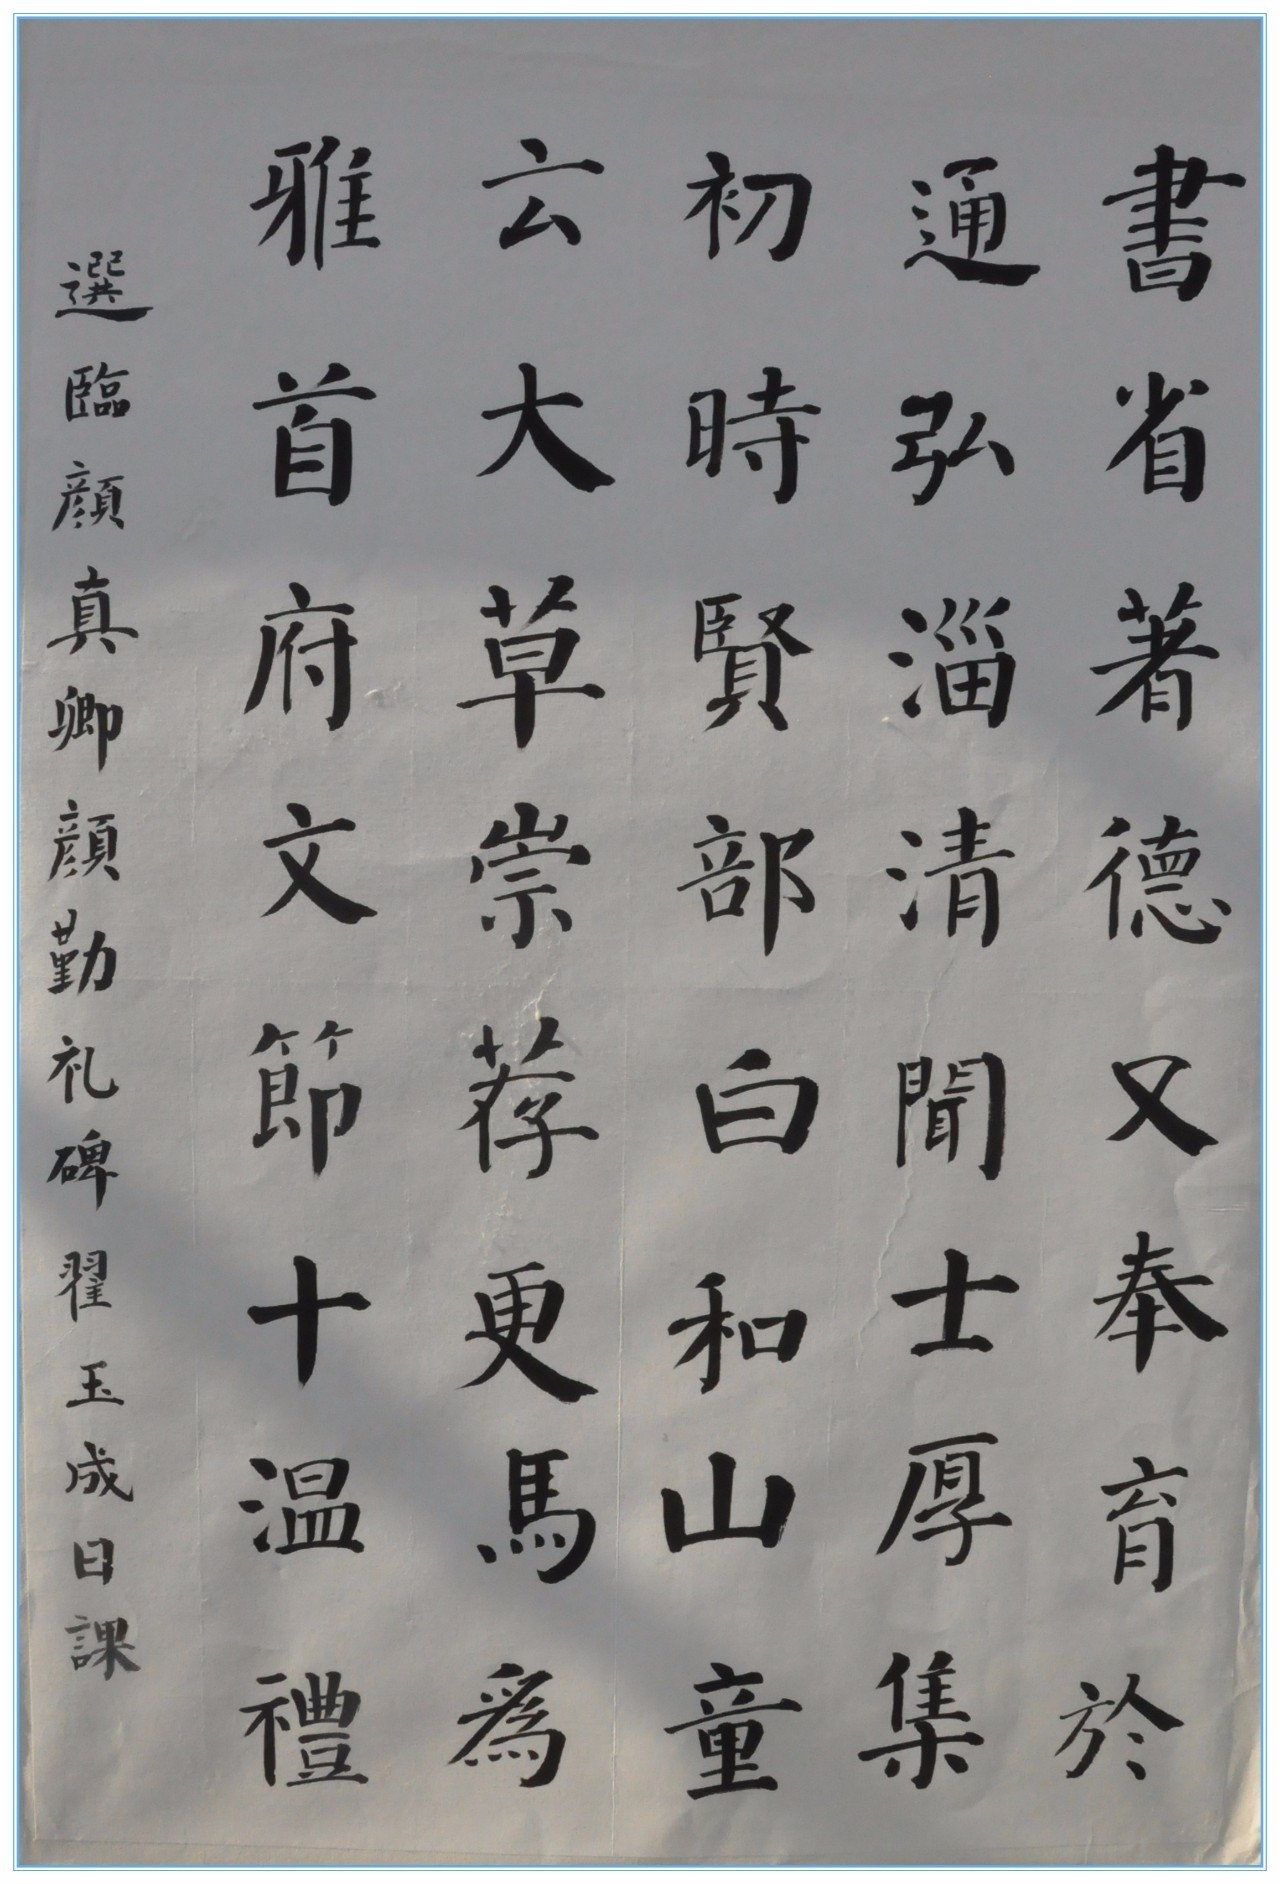 書省著德又奉育於
通弘淄清聞士厚集
初時賢部白和山童
云大草崇荐更馬為
雅首府文節十温禮
選臨顔真卿顔勤礼碑翟玉成日課